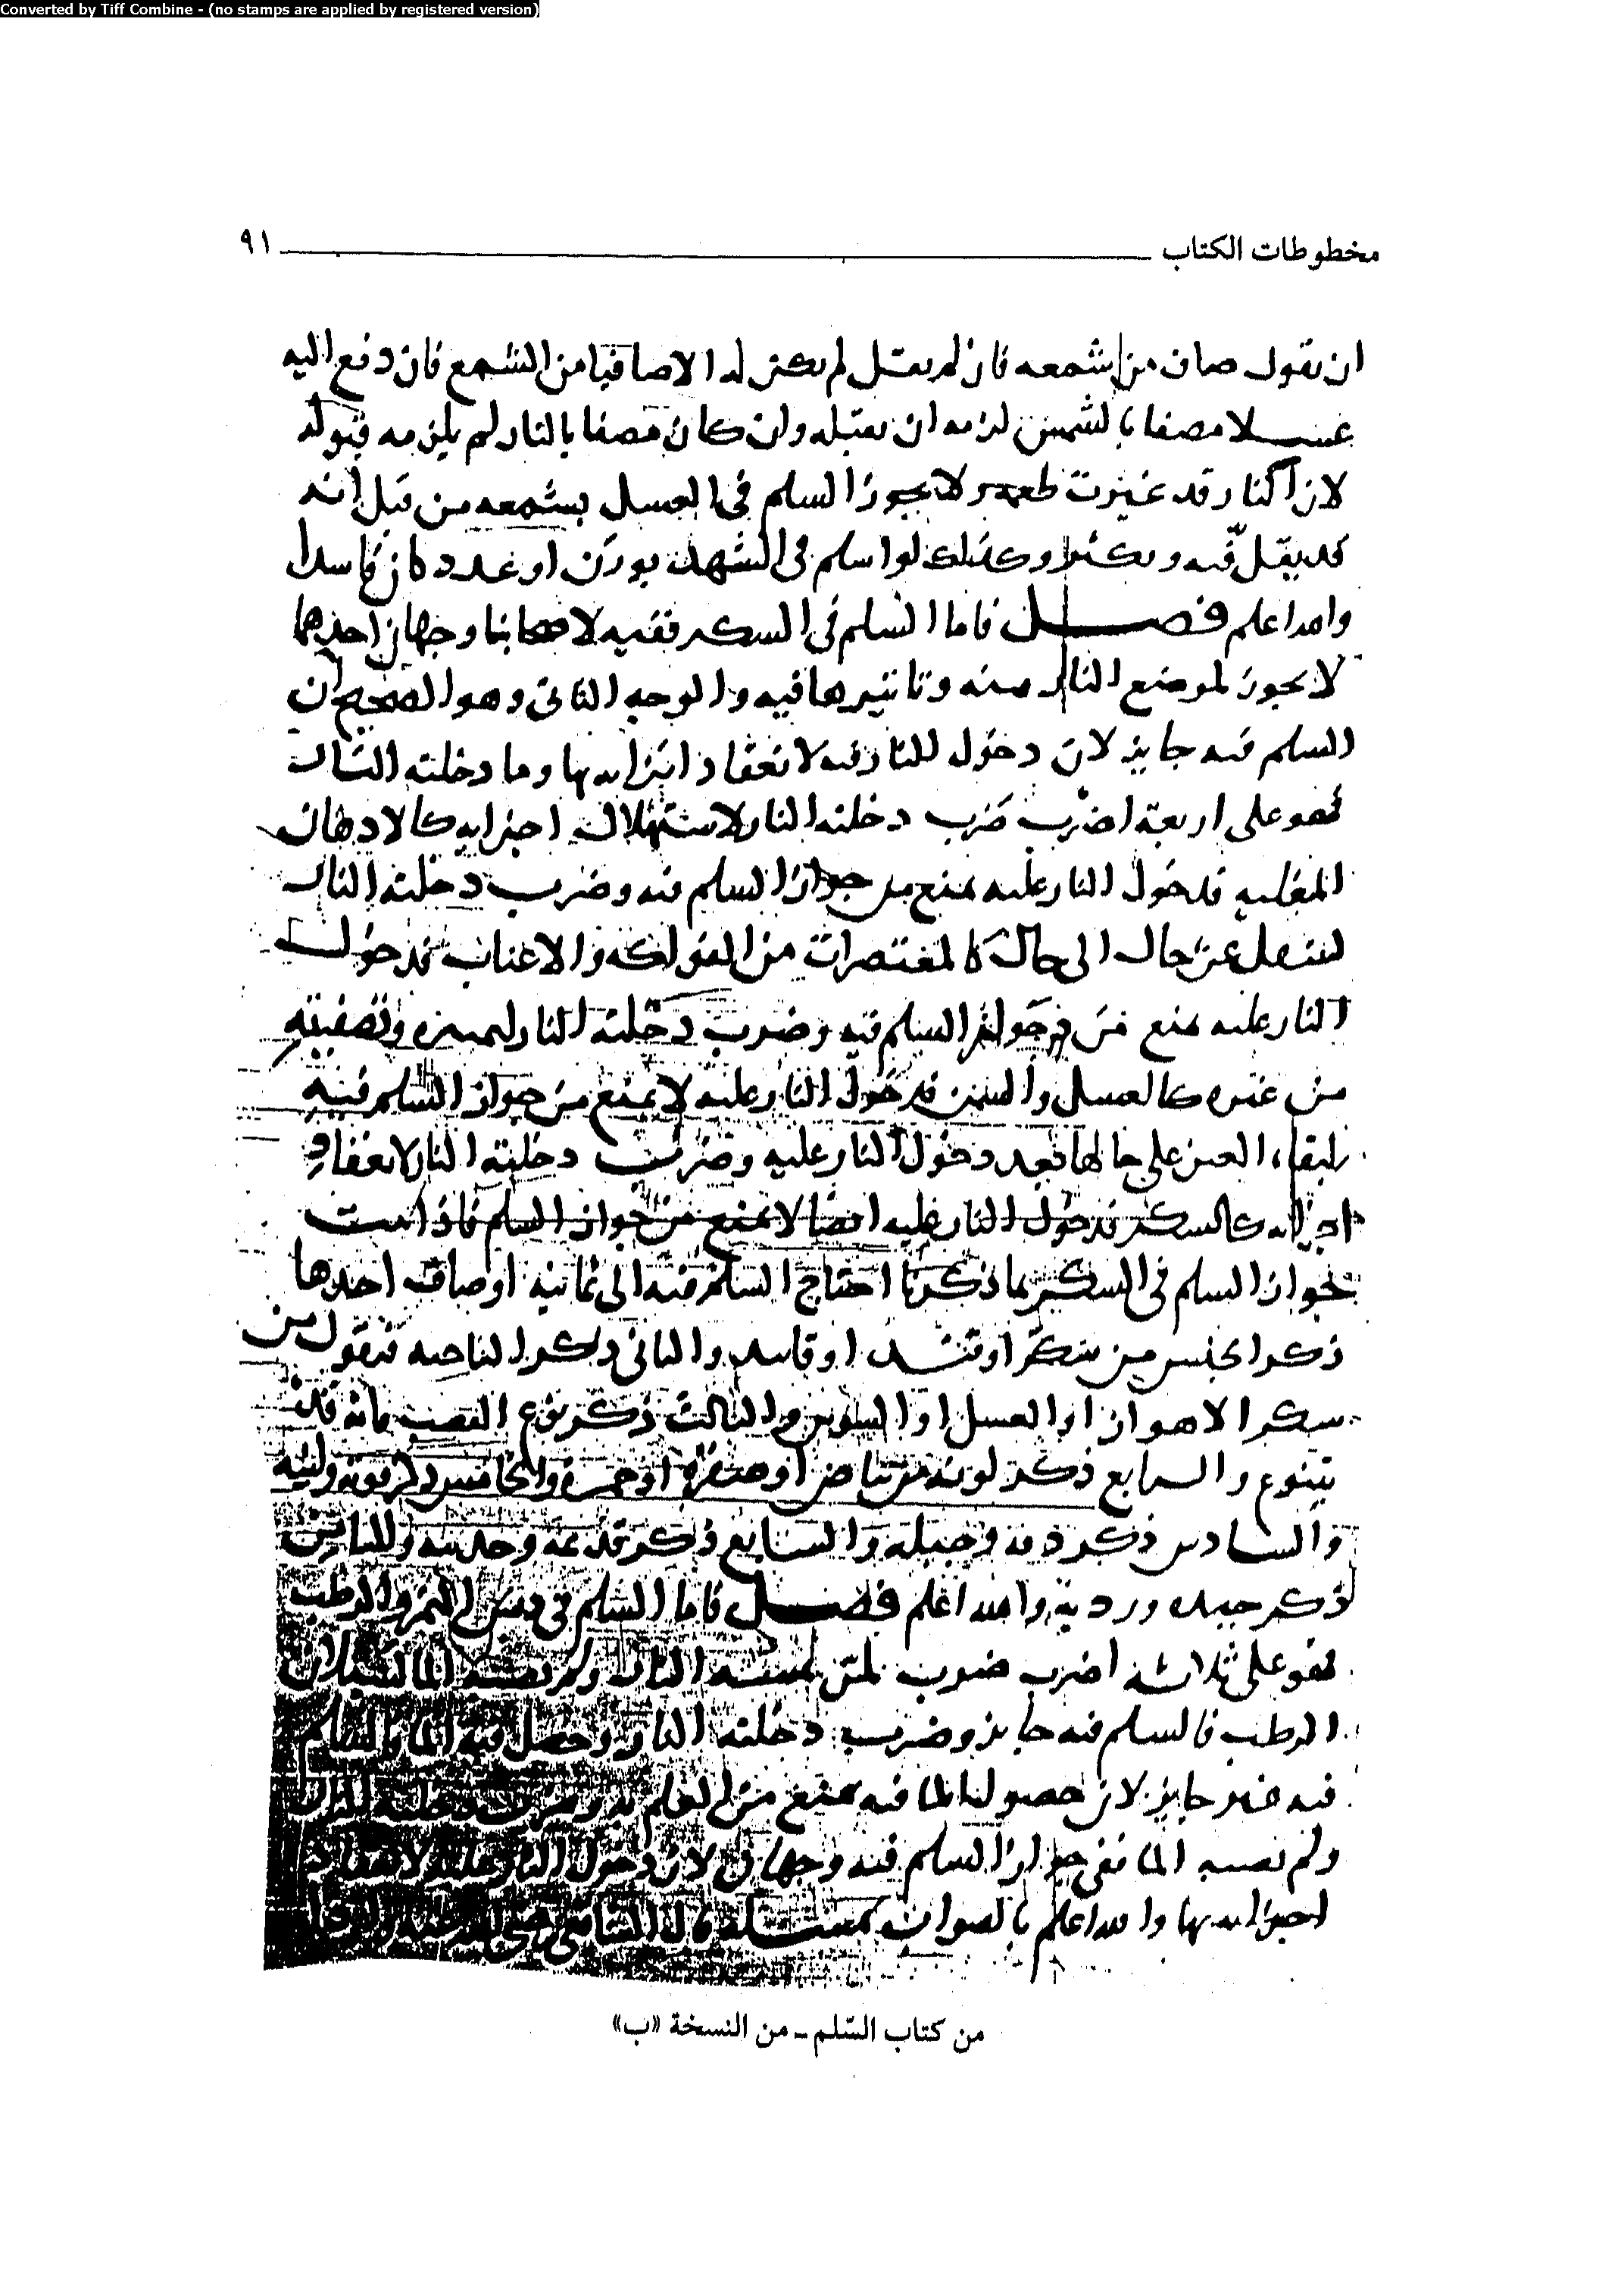 Converted by Tiff Combine - (no stamps are applied by registered version)
مخطوطات الكتاب ٩١
ان يقول صاف من شمعه فان لم يقل لم يكن له الا صافيا من الشمع فان دفع اليه
عسلا مصفا بالشمس لزمه ان يقبله وان كان مصفا بالنار لم يلزمه قبوله
لان النار قد غيرت طعمه ولا يجوز السلم في العسل بشمعه من قبل انه
قد يقل فيه ويكثر وكذلك لو اسلم في الشهد بوزن او عدد كان فاسدا
والله اعلم فصل فاما السلم في السكر ففيه لاصحابنا وجهان احدهما
لا يجوز لموضع النار منه وتاثيرها فيه والوجه الثاني وهو الصحيح ان
السلم فيه جايز لان دخول النار فيه لانعقاد اجزايه بها وما دخلته النار
فهو على اربعة اضرب ضرب دخلته النار لاستهلاك اجزايه كالادهان
المغليه فدخول النار عليه يمنع من جواز السلم فيه وضرب دخلته النار
لينتقل عن حال الى حال كالمعتصرات من الفواكه والاعناب فدخول
النار عليه يمنع من جواز السلم فيه وضرب دخلته النار لتميزه وتصفيته
من غيره كالعسل والسمن فدخول النار عليه لا يمنع من جواز السلم فيه
لبقاء العين على حالها بعد دخول النار عليه وضرب دخلته النار لانعقاد
اجزايه كالسكر فدخول النار عليه ايضا لا يمنع من جواز السلم فاذا ثبت
جواز السلم في السكر بما ذكرنا احتاج السلم فيه الى ثمانيه اوصاف احدها
ذكر الجنس من سكر او قند او فانيد والثاني ذكر الناحيه فيقول من
سكر الاهواز او العسل او والثالث ذكر نوع القصب فانه قد
يتنوع والرابع ذكر لونه من بياض او صفرة او حمرة والخامس ذكر قوته ولينه
والسادس ذكر وجيله والسابع ذكر قديمه وحديثه والثامن
ذكر جيده ورديه والله اعلم فصل فاما السلم في دبس التمر والرطب
فهو على ثلاثة اضرب ضرب لم تمسه النار ولم يصبه الما كسيلان
الرطب فالسلم فيه جايز وضرب دخلته النار وحصل فيه الما فالسلم
فيه غير جايز لان حصول الما فيه يمنع من العلم به وضرب دخلته النار
ولم يصبه الما ففي جواز السلم فيه وجهان لان دخول النار عليه لانعقاد
اجزايه بها والله اعلم بالصواب مسئلة قال الشافعي رضي الله عنه
من كتاب السّلم ـ من النسخة «ب»